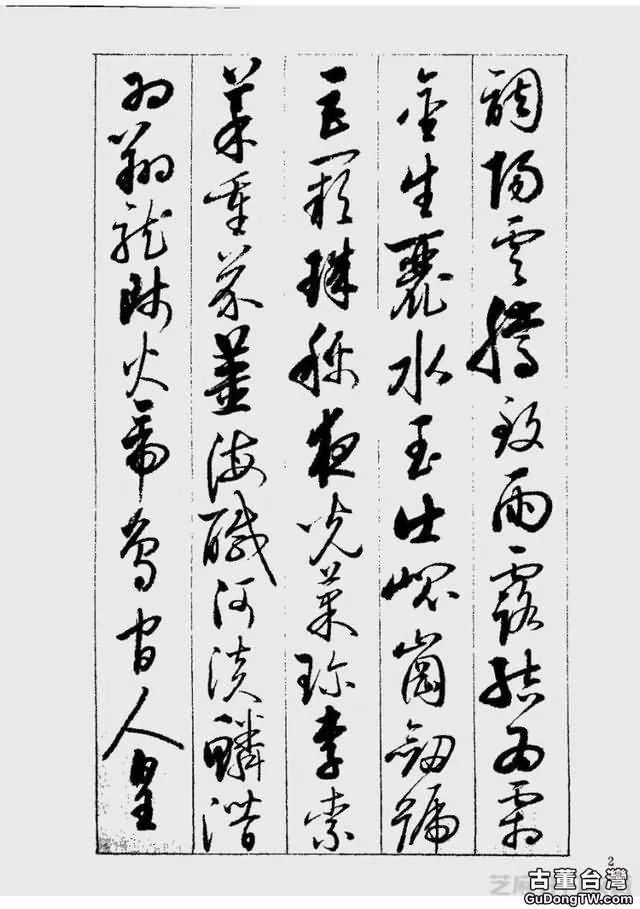 調陽雲騰致雨露結為霜
金生麗水玉出崐崗劍號
巨闕珠稱夜光菓珍李柰
菜重芥薑海醎河淡鱗潛
羽翔龍師火帝鳥官人皇
2
古董台灣
GuDongTW.com